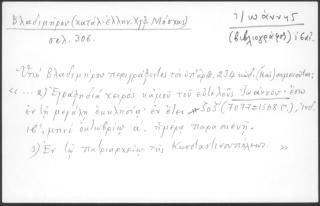 Βλαδιμήρου (κατάλ. ἑλλην. Χφ. Μόσχας)
σελ. 306.
Ἰωάννης
(βιβλιογράφος) ιϛ΄ αἰ.
Ὑπὸ Βλαδιμήρου περιγράφοντας τὸ ὑπ' ἀριθ. 234 κώδ. (καὶ) σημειοῦται:
«... 2) Ἐγράφη διὰ χειρὸς κἀμοῦ τοῦ εὐτελοῦς Ἰωάννου. ἔσω
ἐν τῇ μεγάλῃ ἐκκλησίᾳ· ἐν ἔτει ζοζ (7077=1568 Γ.), ἰνδ.
ιβ΄, μηνὶ ὀκτωβρίῳ α΄. ἡμέρᾳ παρασκευῇ.
3) Ἐν τῷ πατριαρχείῳ τῆς Κωνσταντινουπόλεως. »